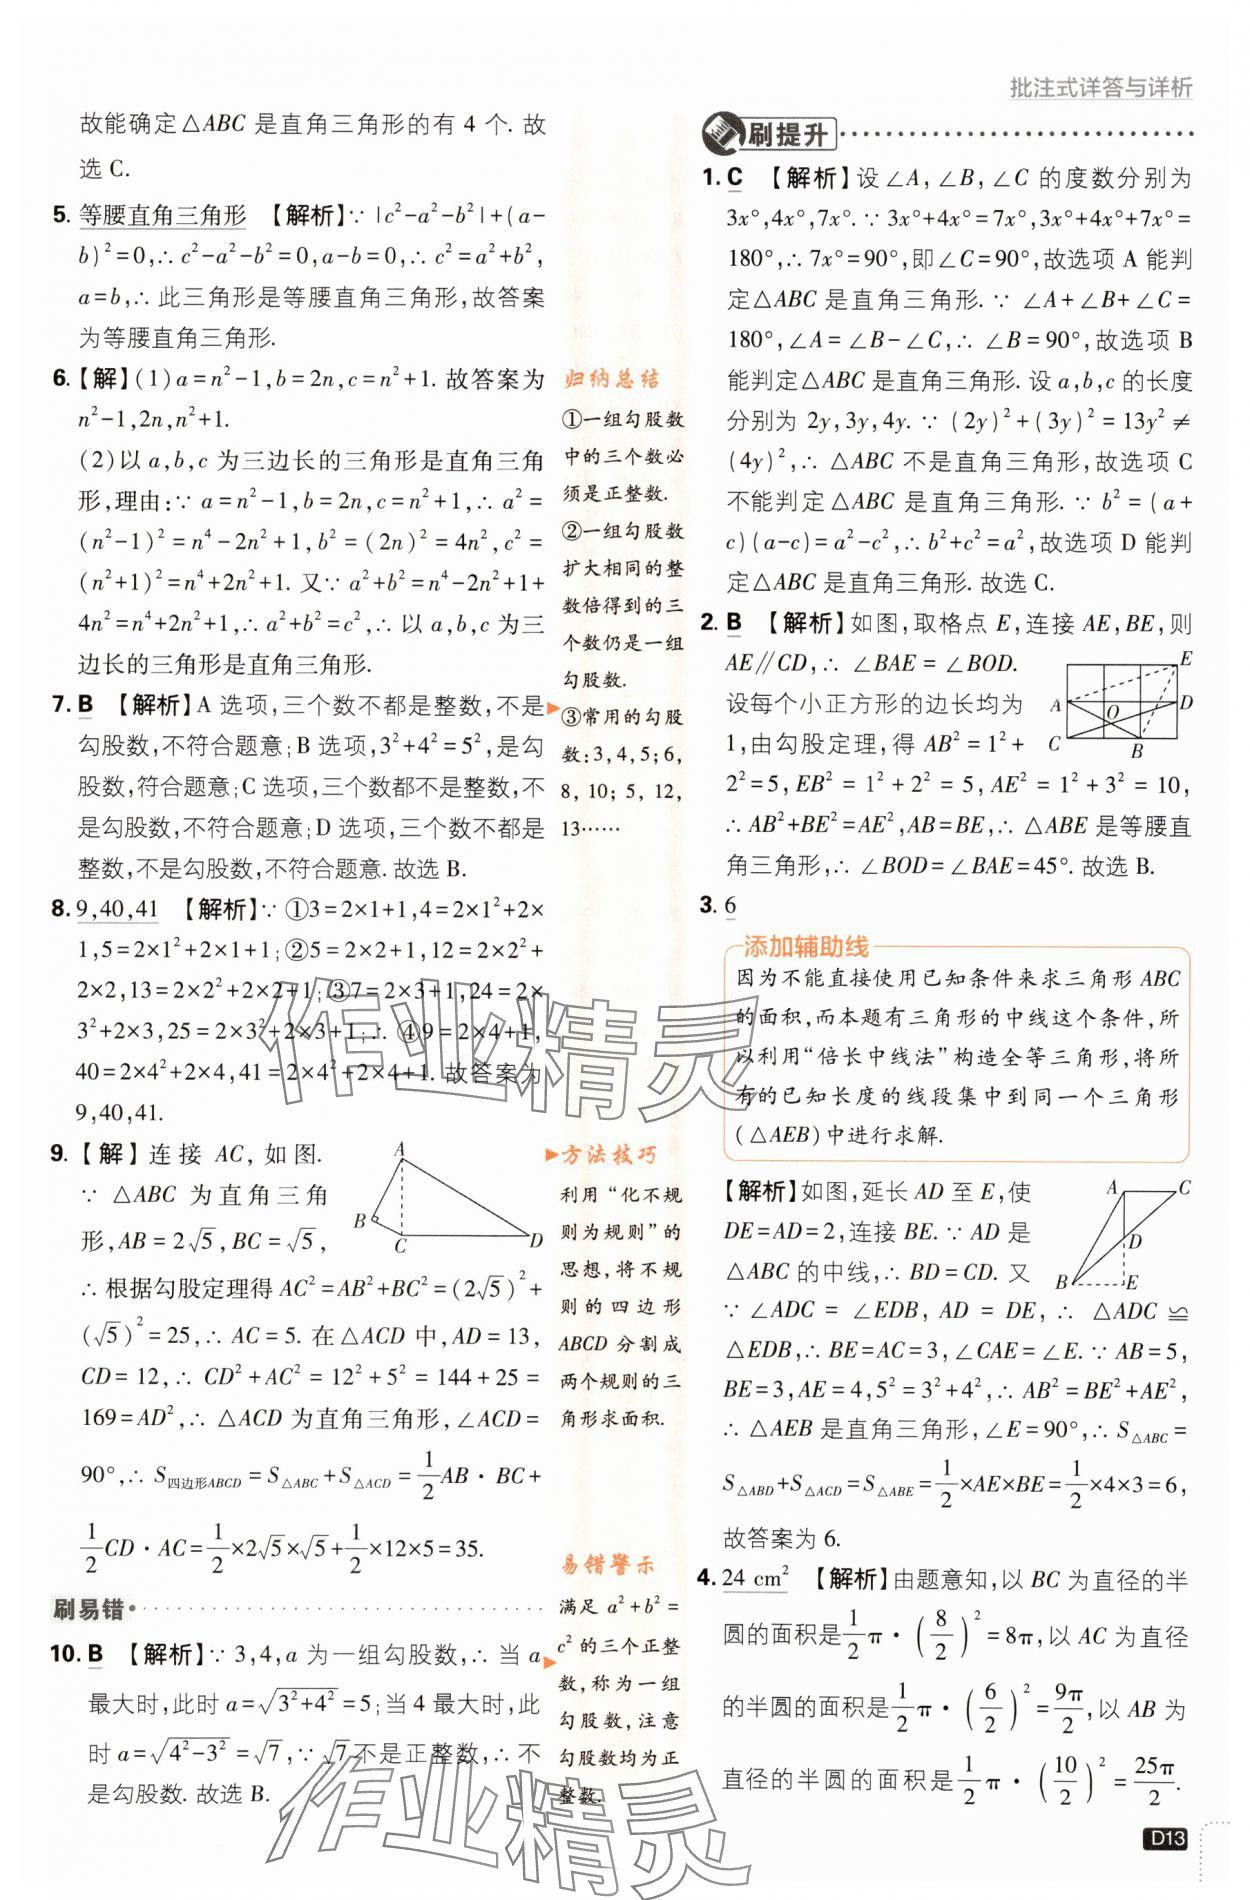 批注式详答与详析
故能确定△ABC 是直角三角形的有 4 个. 故
选 C.
5. 等腰直角三角形 【解析】∵ |c²-a²-b²|+(a-
b)²=0,∴ c²-a²-b²=0,a-b=0,∴ c²=a²+b²,
a=b,∴ 此三角形是等腰直角三角形,故答案
为等腰直角三角形.
6.【解】(1)a=n²-1,b=2n,c=n²+1. 故答案为
n²-1,2n,n²+1.
(2)以 a,b,c 为三边长的三角形是直角三角
形,理由:∵ a=n²-1,b=2n,c=n²+1,∴ a²=
(n²-1)²=n⁴-2n²+1,b²=(2n)²=4n²,c²=
(n²+1)²=n⁴+2n²+1. 又∵ a²+b²=n⁴-2n²+1+
4n²=n⁴+2n²+1,∴ a²+b²=c²,∴ 以 a,b,c 为三
边长的三角形是直角三角形.
7. B 【解析】A 选项,三个数不都是整数,不是
勾股数,不符合题意;B 选项,3²+4²=5²,是勾
股数,符合题意;C 选项,三个数都不是整数,不
是勾股数,不符合题意;D 选项,三个数不都是
整数,不是勾股数,不符合题意. 故选 B.
8. 9,40,41 【解析】∵ ①3=2×1+1,4=2×1²+2×
1,5=2×1²+2×1+1;②5=2×2+1,12=2×2²+
2×2,13=2×2²+2×2+1;③7=2×3+1,24=2×
3²+2×3,25=2×3²+2×3+1;∴ ④9=2×4+1,
40=2×4²+2×4,41=2×4²+2×4+1. 故答案为
9,40,41.
9.【解】连接 AC, 如图.
∵ △ABC 为直角三角
形,AB=2√5,BC=√5,
A
B
C
D
∴ 根据勾股定理得 AC²=AB²+BC²=(2√5)²+
(√5)²=25,∴ AC=5. 在△ACD 中,AD=13,
CD=12,∴ CD²+AC²=12²+5²=144+25=
169=AD²,∴ △ACD 为直角三角形,∠ACD=
90°,∴ S四边形ABCD=S△ABC+S△ACD=1/2AB·BC+
1/2CD·AC=1/2×2√5×√5+1/2×12×5=35.
刷易错
10. B 【解析】∵ 3,4,a 为一组勾股数,∴ 当 a
最大时,此时 a=√(3²+4²)=5;当 4 最大时,此
时 a=√(4²-3²)=√7,∵ √7不是正整数,∴ 不
是勾股数. 故选 B.
归纳总结
①一组勾股数
中的三个数必
须是正整数.
②一组勾股数
扩大相同的整
数倍得到的三
个数仍是一组
勾股数.
③常用的勾股
数:3,4,5;6,
8,10;5,12,
13……
方法技巧
利用“化不规
则为规则”的
思想,将不规
则的四边形
ABCD 分割成
两个规则的三
角形求面积.
易错警示
满足 a²+b²=
c² 的三个正整
数,称为一组
勾股数,注意
勾股数均为正
整数.
刷提升
1. C 【解析】设 ∠A,∠B,∠C 的度数分别为
3x°,4x°,7x°. ∵ 3x°+4x°=7x°,3x°+4x°+7x°=
180°,∴ 7x°=90°,即∠C=90°,故选项 A 能判
定△ABC 是直角三角形. ∵ ∠A+∠B+∠C=
180°,∠A=∠B-∠C,∴ ∠B=90°,故选项 B
能判定△ABC 是直角三角形. 设 a,b,c 的长度
分别为 2y,3y,4y. ∵ (2y)²+(3y)²=13y²≠
(4y)²,∴ △ABC 不是直角三角形,故选项 C
不能判定△ABC 是直角三角形. ∵ b²=(a+
c)(a-c)=a²-c²,∴ b²+c²=a²,故选项 D 能判
定△ABC 是直角三角形. 故选 C.
2. B 【解析】如图,取格点 E,连接 AE,BE,则
AE∥CD,∴ ∠BAE=∠BOD.
设每个小正方形的边长均为
1,由勾股定理,得 AB²=1²+
E
A
O
D
C
B
2²=5,EB²=1²+2²=5,AE²=1²+3²=10,
∴ AB²+BE²=AE²,AB=BE,∴ △ABE 是等腰直
角三角形,∴ ∠BOD=∠BAE=45°. 故选 B.
3. 6
添加辅助线
因为不能直接使用已知条件来求三角形 ABC
的面积,而本题有三角形的中线这个条件,所
以利用“倍长中线法”构造全等三角形,将所
有的已知长度的线段集中到同一个三角形
(△AEB)中进行求解.
【解析】如图,延长 AD 至 E,使
DE=AD=2,连接 BE. ∵ AD 是
△ABC 的中线,∴ BD=CD. 又
A
C
D
B
E
∵ ∠ADC=∠EDB, AD=DE, ∴ △ADC≌
△EDB,∴ BE=AC=3,∠CAE=∠E. ∵ AB=5,
BE=3,AE=4,5²=3²+4²,∴ AB²=BE²+AE²,
∴ △AEB 是直角三角形,∠E=90°,∴ S△ABC=
S△ABD+S△ACD=S△ABE=1/2×AE×BE=1/2×4×3=6,
故答案为 6.
4. 24 cm² 【解析】由题意知,以 BC 为直径的半
圆的面积是1/2π·(8/2)²=8π,以 AC 为直径
的半圆的面积是1/2π·(6/2)²=9π/2,以 AB 为
直径的半圆的面积是1/2π·(10/2)²=25π/2.
D13
作业精灵
作业精灵